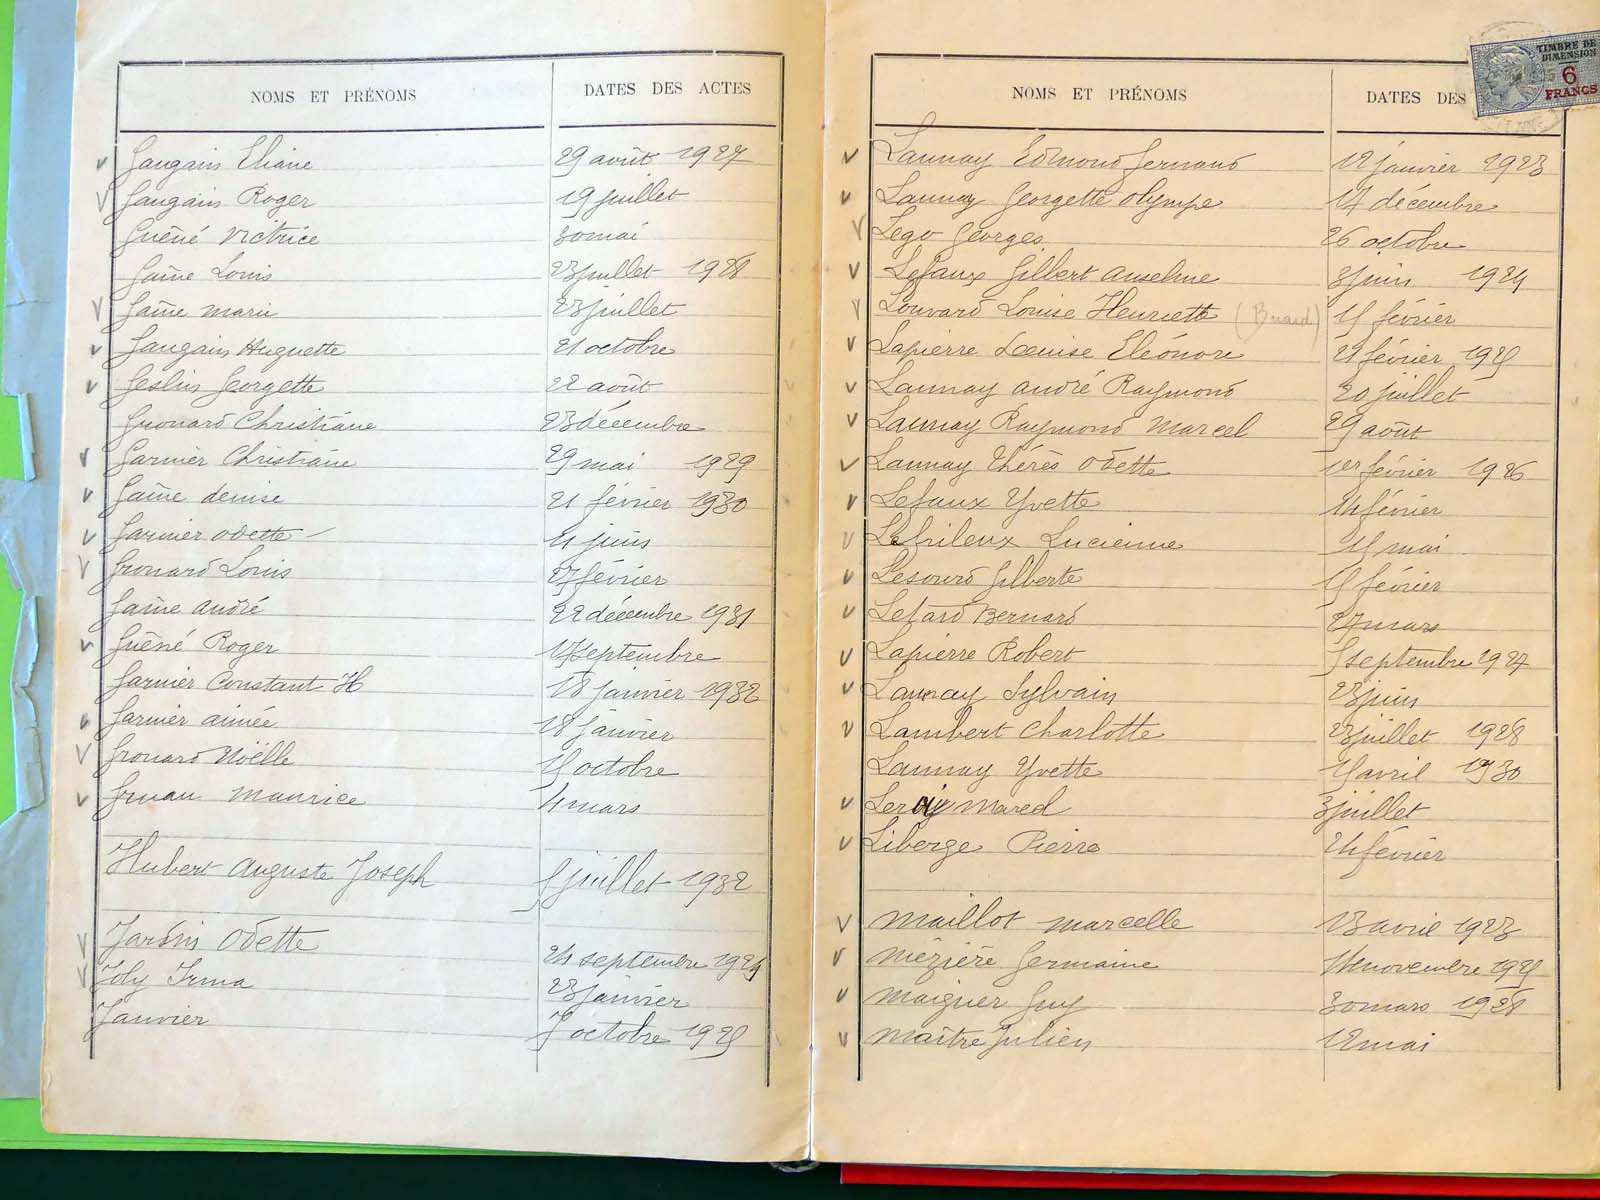 NOMS ET PRÉNOMS DATES DES ACTES
Gaugain Eliane 29 août 1927
Gaugain Roger 19 juillet
Guéné Victrice 30 mai
Gaîne Louis 23 juillet 1928
Gaîne Marie 23 juillet
Gaugain Huguette 21 octobre
Geslin Georgette 22 août
Grouard Christiane 23 décembre
Garnier Christiane 29 mai 1929
Gaîne denise 21 février 1930
Garnier Odette 4 juin
Grouard Louis 27 février
Gaîne André 22 décembre 1931
Guéné Roger 17 septembre
Garnier Constant H 18 janvier 1932
Garnier aimée 18 janvier
Grouard Noëlle octobre
Gruau Maurice 4 mars
Hubert Auguste Joseph 5 juillet 1932
Jardin Odette 24 septembre 1924
Joly Irma 23 janvier
Janvier 7 octobre 1925
NOMS ET PRÉNOMS DATES DES
TIMBRE DE
DIMENSION
6
FRANCS
Launay Edmond Fernand 12 janvier 1923
Launay Georgette Olympe 14 décembre
Lego Georges 26 octobre
Lefaux Gilbert Anselme 3 juin 1924
Louvard Louise Henriette février
Lapierre Louise Eléonore 21 février 1925
Launay André Raymond 20 juillet
Launay Raymond Marcel 29 août
Launay Thérès Odette 1er février 1926
Lefaux Yvette 14 février
Lefrileux Lucienne mai
Lesourd Gilberte février
Letard Bernard 27 mars
Lapierre Robert 5 septembre 1927
Launay Sylvain 23 juin
Lambert Charlotte 23 juillet 1928
Launay Yvette avril 1930
Leroy Marcel 3 juillet
Liberge Pierre 24 février
Maillot Marcelle 13 avril 1923
Mézière Germaine 14 novembre 1925
Maiguer Guy 30 mars 1928
Maître Julien 12 mai